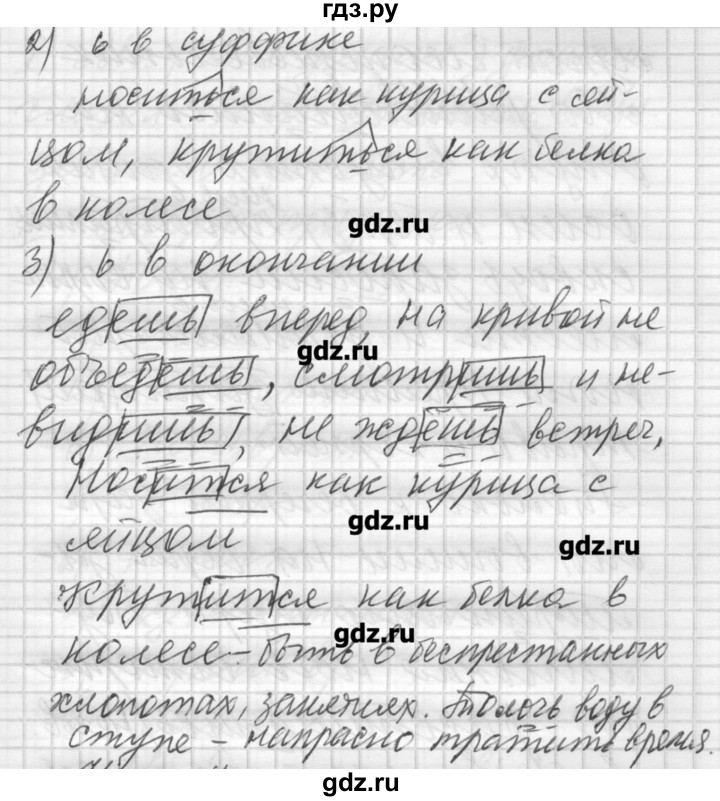 гдз.ру
2) ь в суффике
носиться как курица с яй-
цом, крутиться как белка
в колесе
gdz.ru
3) ь в окончании
едешь вперед, на кривой не
gdz.ru
объедешь, смотришь и не-
видишь, не ждешь встреч,
Носится как курица с
gdz.ru
яйцом
gdz.ru
Крутится как белка в
gdz.ru
колесе - быть в беспрестанных
хлопотах, занятиях. Толочь воду в
ступе - напрасно тратить время.
gdz.ru